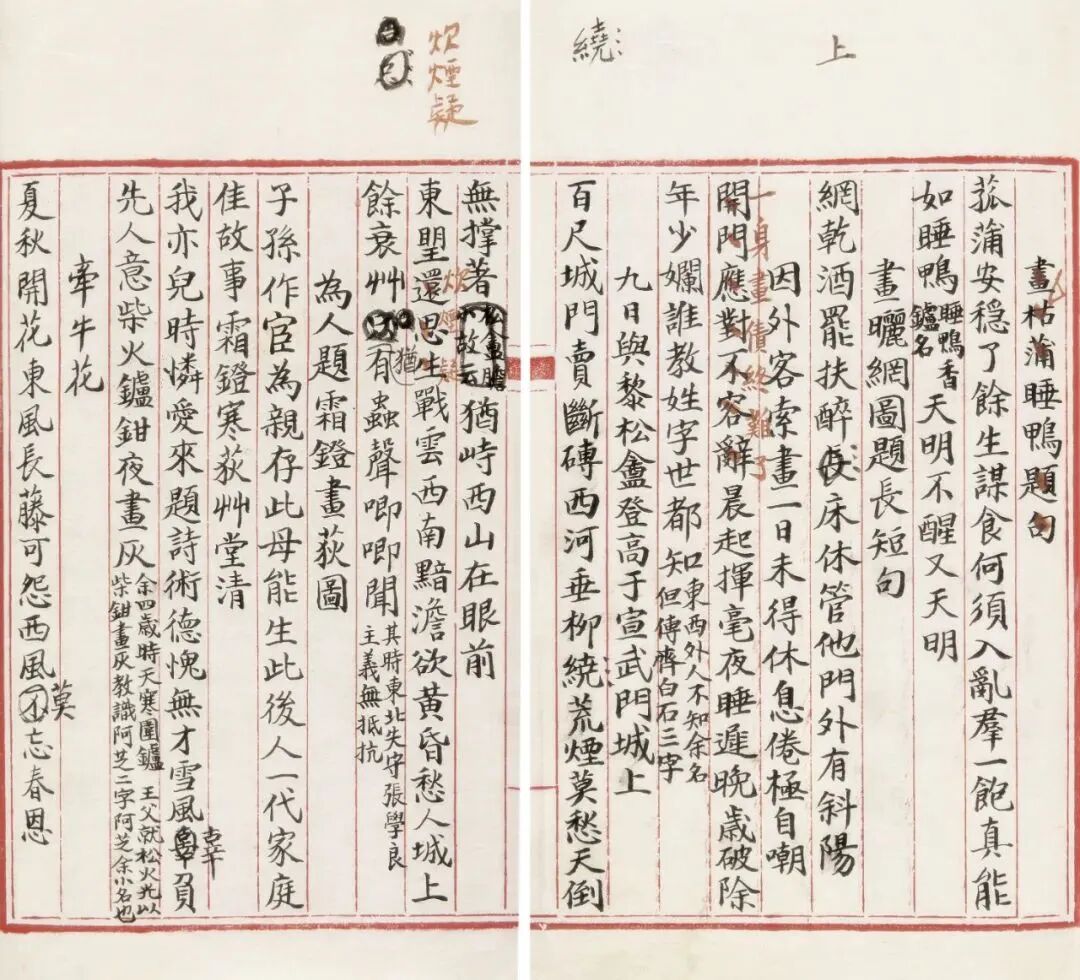 上
繞
畫枯蒲睡鴨題句
菰蒲安穩了餘生謀食何須入亂羣一飽真能
如睡鴨睡鴨香鑪名天明不醒又天明
畫曬網圖題長短句
網乾酒罷扶醉長床休管他門外有斜陽
因外客索畫一日未得休息倦極自嘲
一身畫債終難了
開門應對不容辭晨起揮毫夜睡遲晚歲破除
年少嬾誰教姓字世都知東西外人不知余名但傳齊白石三字
九日與黎松盦登高于宣武門城上
百尺城門賣斷磚西河垂柳繞荒煙莫愁天倒
炊煙疑
無撐著松盦膽故云猶峙西山在眼前
東朢還思生戰雲西南黯澹欲黃昏愁人城上
炊煙疑
餘衰艸猶有蟲聲唧唧聞其時東北失守張學良主義無抵抗
為人題霜鐙畫荻圖
子孫作官為親存此母能生此後人一代家庭
佳故事霜鐙寒荻艸堂清
我亦兒時憐愛來題詩術德愧無才雪風辜負
先人意柴火鑪鉗夜畫灰余四歲時天寒圍鑪王父就松火光以柴鉗畫灰教識阿芝二字阿芝余小名也
牽牛花
夏秋開花東風長藤可怨西風莫忘春恩